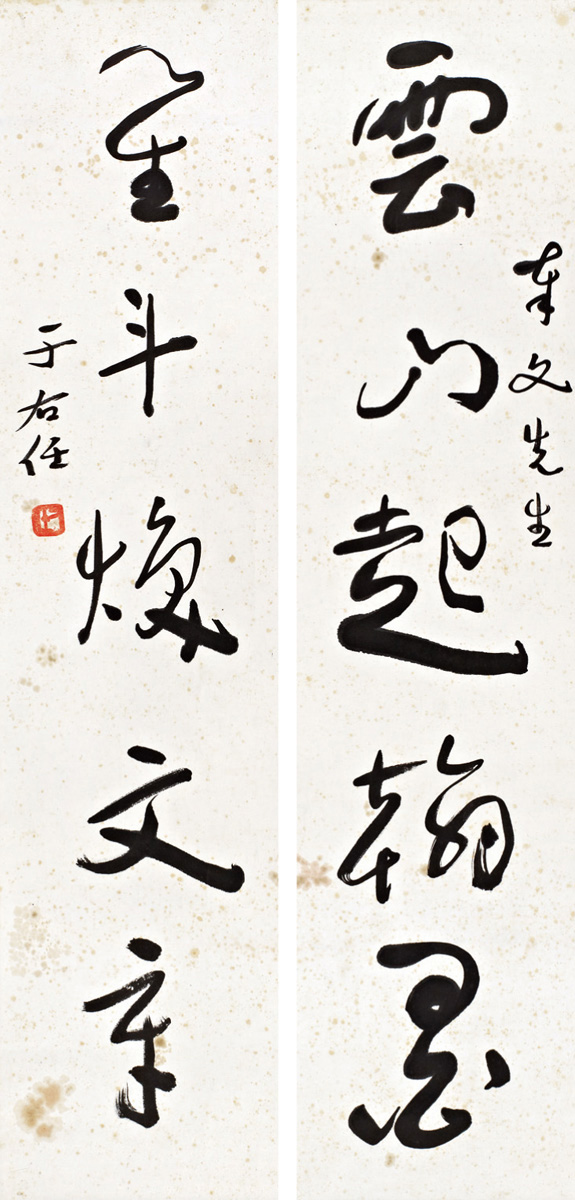 文先生
雲山起翰墨
星斗煥文章
于右任